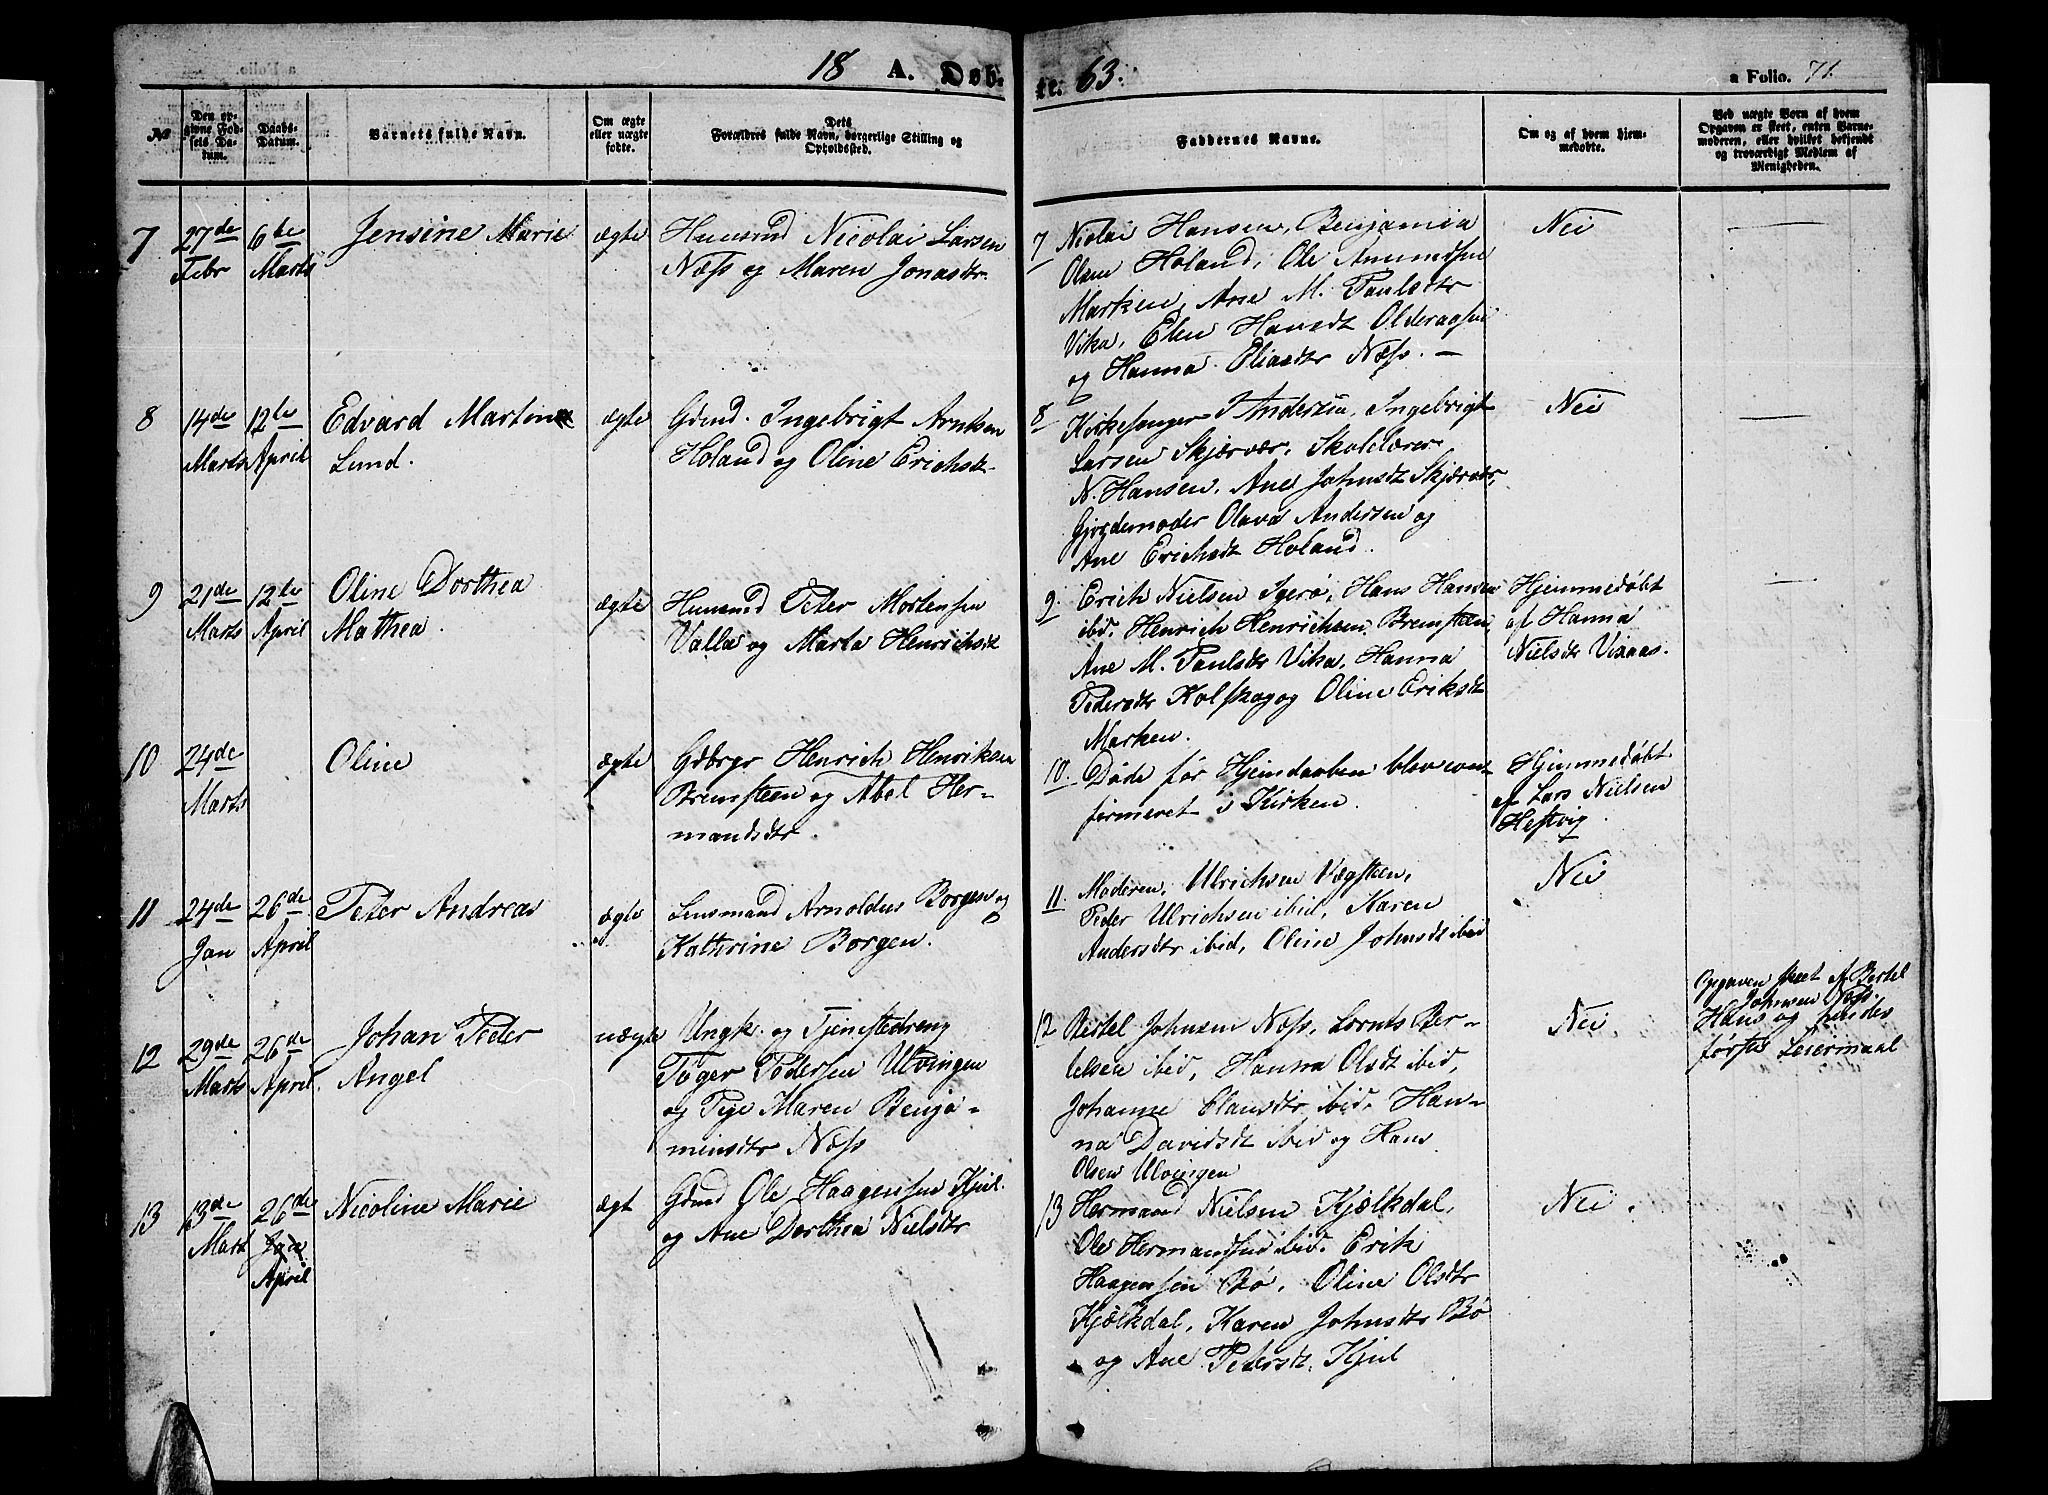 18 A. Døb-
№
Den op-
givne Fød-
sels Da-
tum.
Daabs-
Datum.
Barnets fulde Navn.
Om ægte
eller uægte
fødte.
Dets
Forældres fulde Navn, borgerlige Stilling og
Opholdssted.
7
27de
Febr
6te
Marts
Jensine Marie
ægte
Huusmd Nicolai Larsen
Næss og Maren Jonasdtr.
8
14de
Marts
12te
April
Edvard Martin
Lund.
ægte
Grmd. Ingebrigt Arntsen
Holand og Oline Erichsdt
9
21de
Marts
12te
April
Oline Dorthea
Mathea.
ægte
Huusmd Peter Mortensen
Valla og Marta Henrichsdt
10
24de
Marts
Oline
ægte
Gdbrgr Henrich Henriksen
Bremsteen og Abel Her-
mandsdtr.
11
24de
Jan
26de
April
Peter Andreas
ægte
Lensmand Arnoldus Borgen og
Kathrine Borgen.
12
29de
Marts
26de
April.
Johan Peder
Angel
uægte
Ungk. og Tjenestedreng
Tøger Pedersen Ulvingen
og Pige Maren Benja-
minsdtr Næss
13
13de
Marts
26de
April
Nicoline Marie
ægt
Grmd Ole Haagensen Kjul.
og Ane Dorthea Nielsdtr
te. 63.
a Folio. 71.
Faddernes Navne.
Om og af hvem hjem-
medøbte.
Ved uægte Børn af hvem
Opgaven er skeet, enten Barne-
moderen, eller hvilket bekjendt
og troværdigt Medlem af
Menigheden.
7 Nicolai Hansen, Benjamin
Olsen Holand, Ole Amundsen
Marken, Ane M. Paulsdtr
Vika, Elen Hansdt
og Hanna Eliasdtr Næss. —
Nei
8 Kirkesanger Andersen, Ingebrigt
Larsen Skjærvær, Skolelærer
N. Hansen, Ane Johnsdt Skjærvær,
Gjordemoder Olava Andersen og
Ane Erichsdt Holand.
Nei
9. Erich Nielsen Igerø, Hans Hansen
ibid. Henrich Henrichsen Bremsteen,
Ane M. Paulsdtr Vika, Hanna
Pedersdtr Kalfskag og Oline Eriksdt
Marken.
Hjemmedøbt
af Hanna
Nielsdtr Vixaas.
10. Døde før Hjemdaaben blev con-
firmeret i Kirken.
Hjemmedøbt
af Lars Nielsen
Hestvig
11. Moderen, Ulrichsen Vægsteen,
Peder Ulrichsen ibid, Karen
Andersdtr ibid, Oline Johnsdt ibid
Nei
12 Bertel Johnsen Næss, Lornts Ber-
telsen ibid, Hanna Olsdt ibid,
Johanne Clausdtr ibid. Han-
na Davidsdt ibid og Hans
Olsen Ulvingen
Nei.
Opgaven skeet af Bertel
Johnsen Næss.
Hans og hendes
første Leiermaal
13 Hermand Nielsen Kjælkdal,
Ole Hermandsen ibid. Erik
Haagensen Bø, Oline Olsdtr
Kjælkdal, Karen Johnsdtr Bø
og Ane Petersdt. Kjul
Nei.